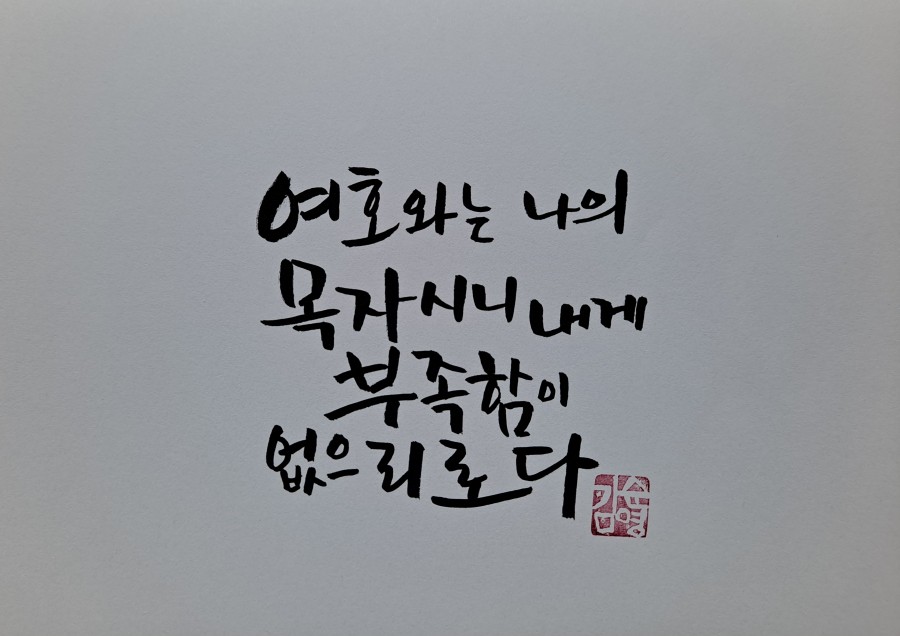 여호와는 나의
목자시니 내게
부족함이
없으리로다
김순영